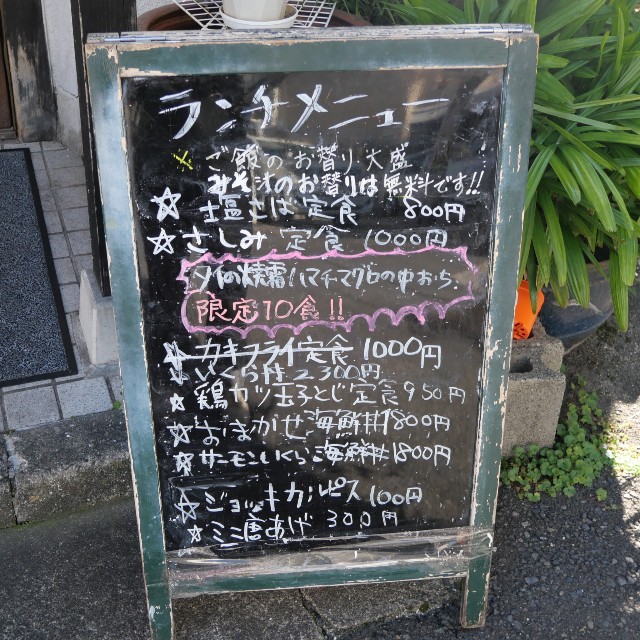 ランチメニュー
ご飯のお替り大盛
みそ汁のお替りは無料です!!
☆塩さば定食 800円
☆さしみ定食 1000円
タイの焼霜ハマチマグロの中おち
限定10食!!
☆カキフライ定食 1000円
いくら丼2300円
☆鶏カツ玉子とじ定食950円
☆おまかせ海鮮丼1800円
☆サーモンいくら海鮮丼1800円
☆ジョッキカルピス100円
☆ミニ唐あげ 300円